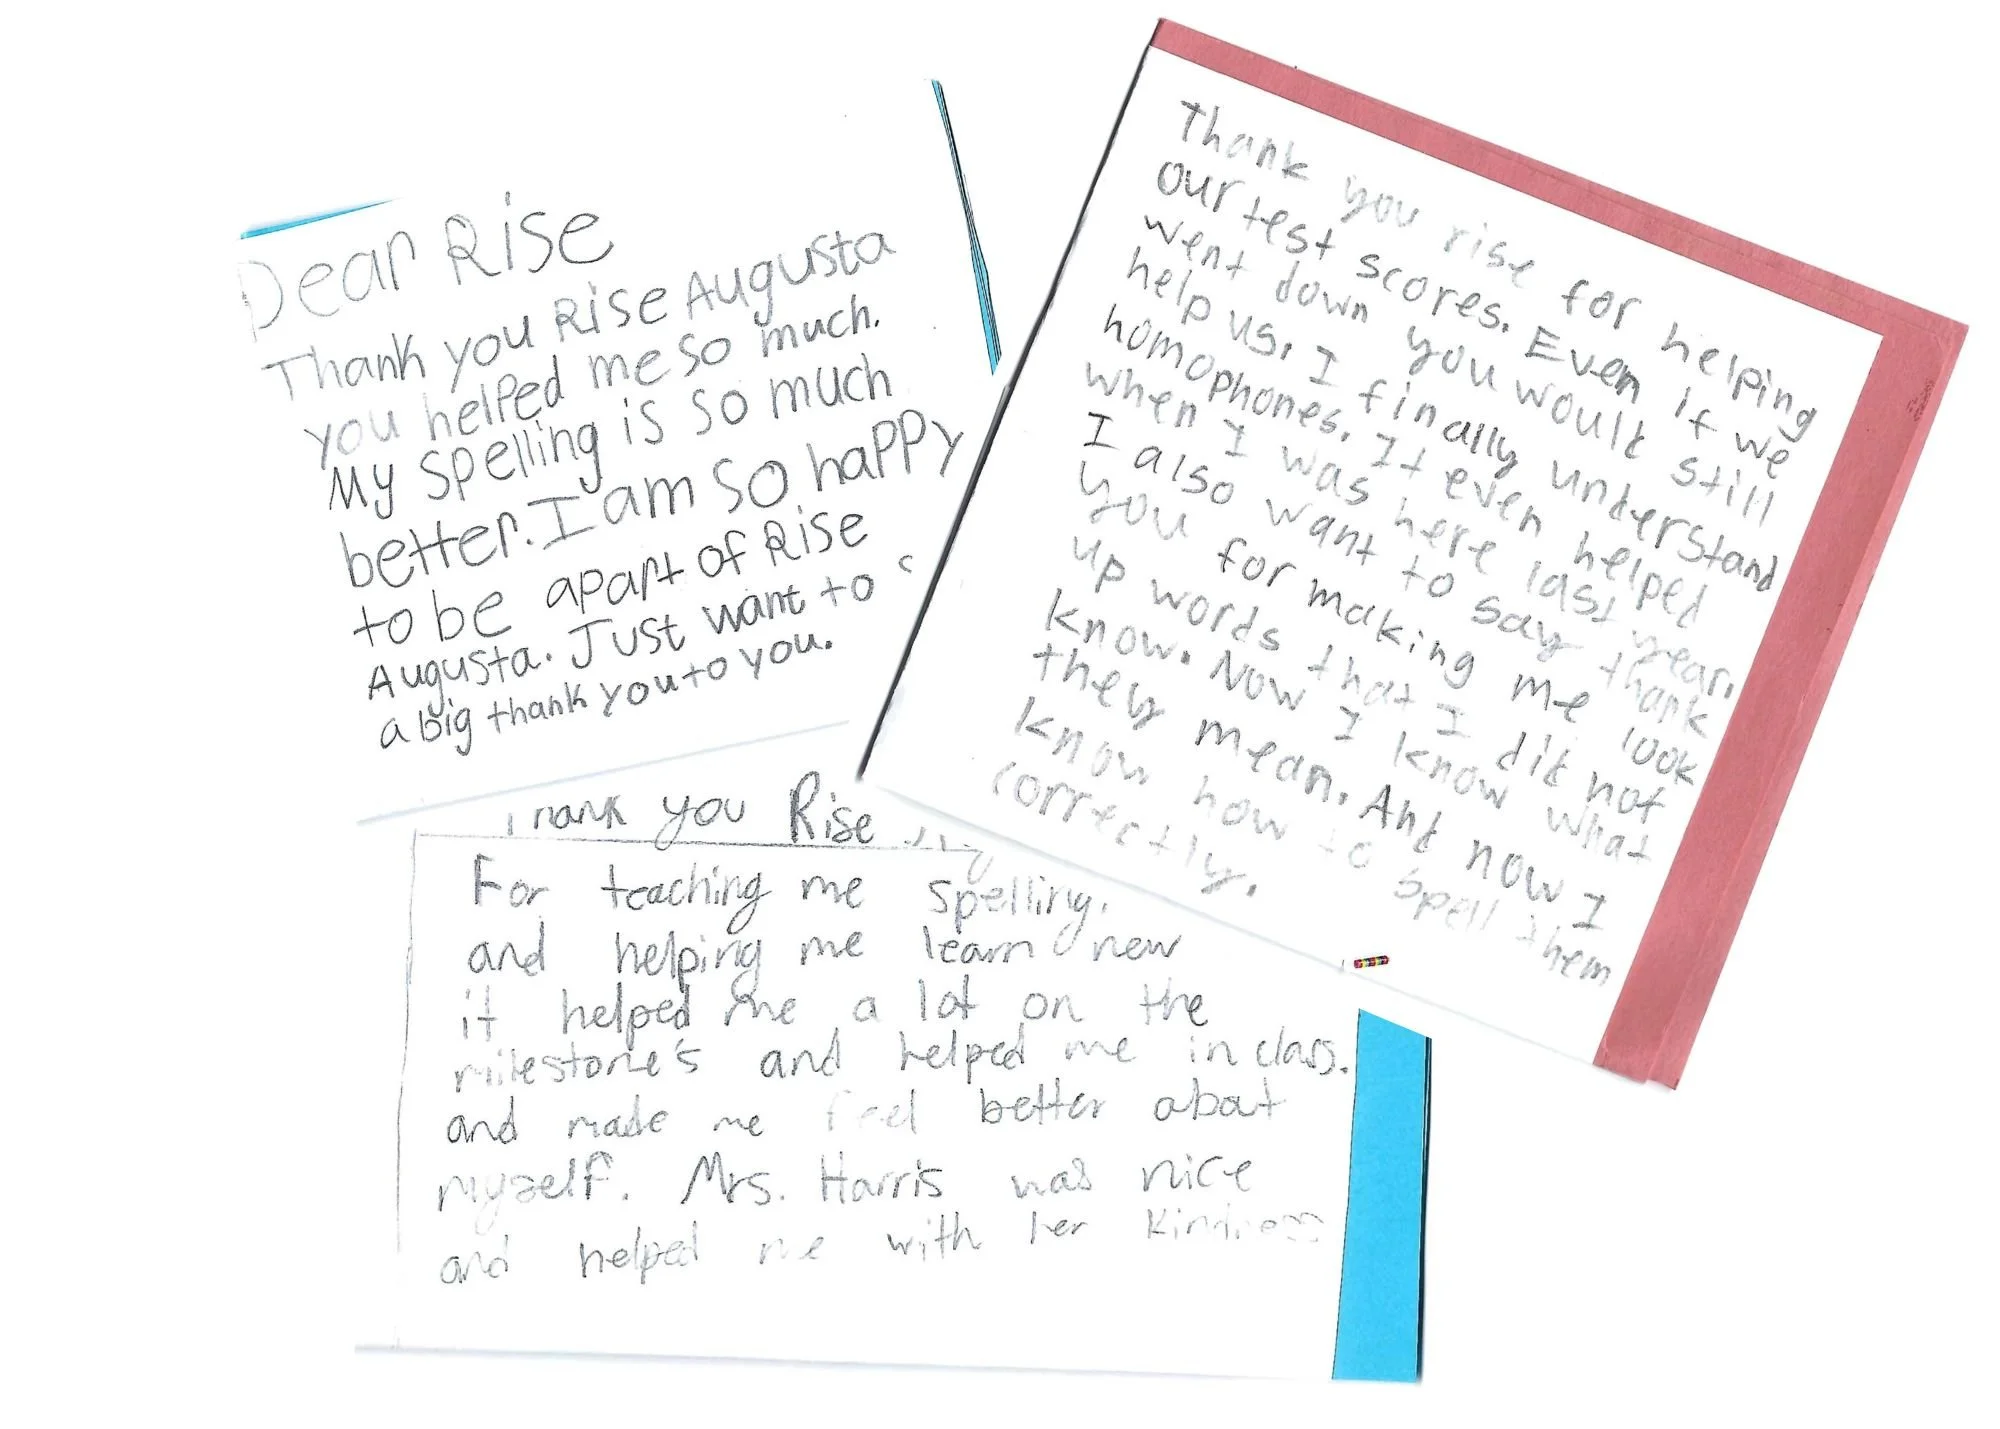 Dear Rise
Thank you Rise Augusta
you helped me so much.
My spelling is so much
better. I am so happy
to be apart of Rise
Augusta. Just want to
a big thank you to you.
Thank you rise for helping
our test scores. Even if we
went down you would still
help us. I finally understand
homophones. It even helped
when I was here last year.
I also want to say thank
you for making me look
up words that I did not
know. Now I know what
they mean. And now I
know how to spell them
correctly.
Thank you Rise
For teaching me spelling.
and helping me learn new
it helped me a lot on the
milestone's and helped me in class.
and made me feel better abat
myself. Mrs. Harris was nice
and helped me with her kindness